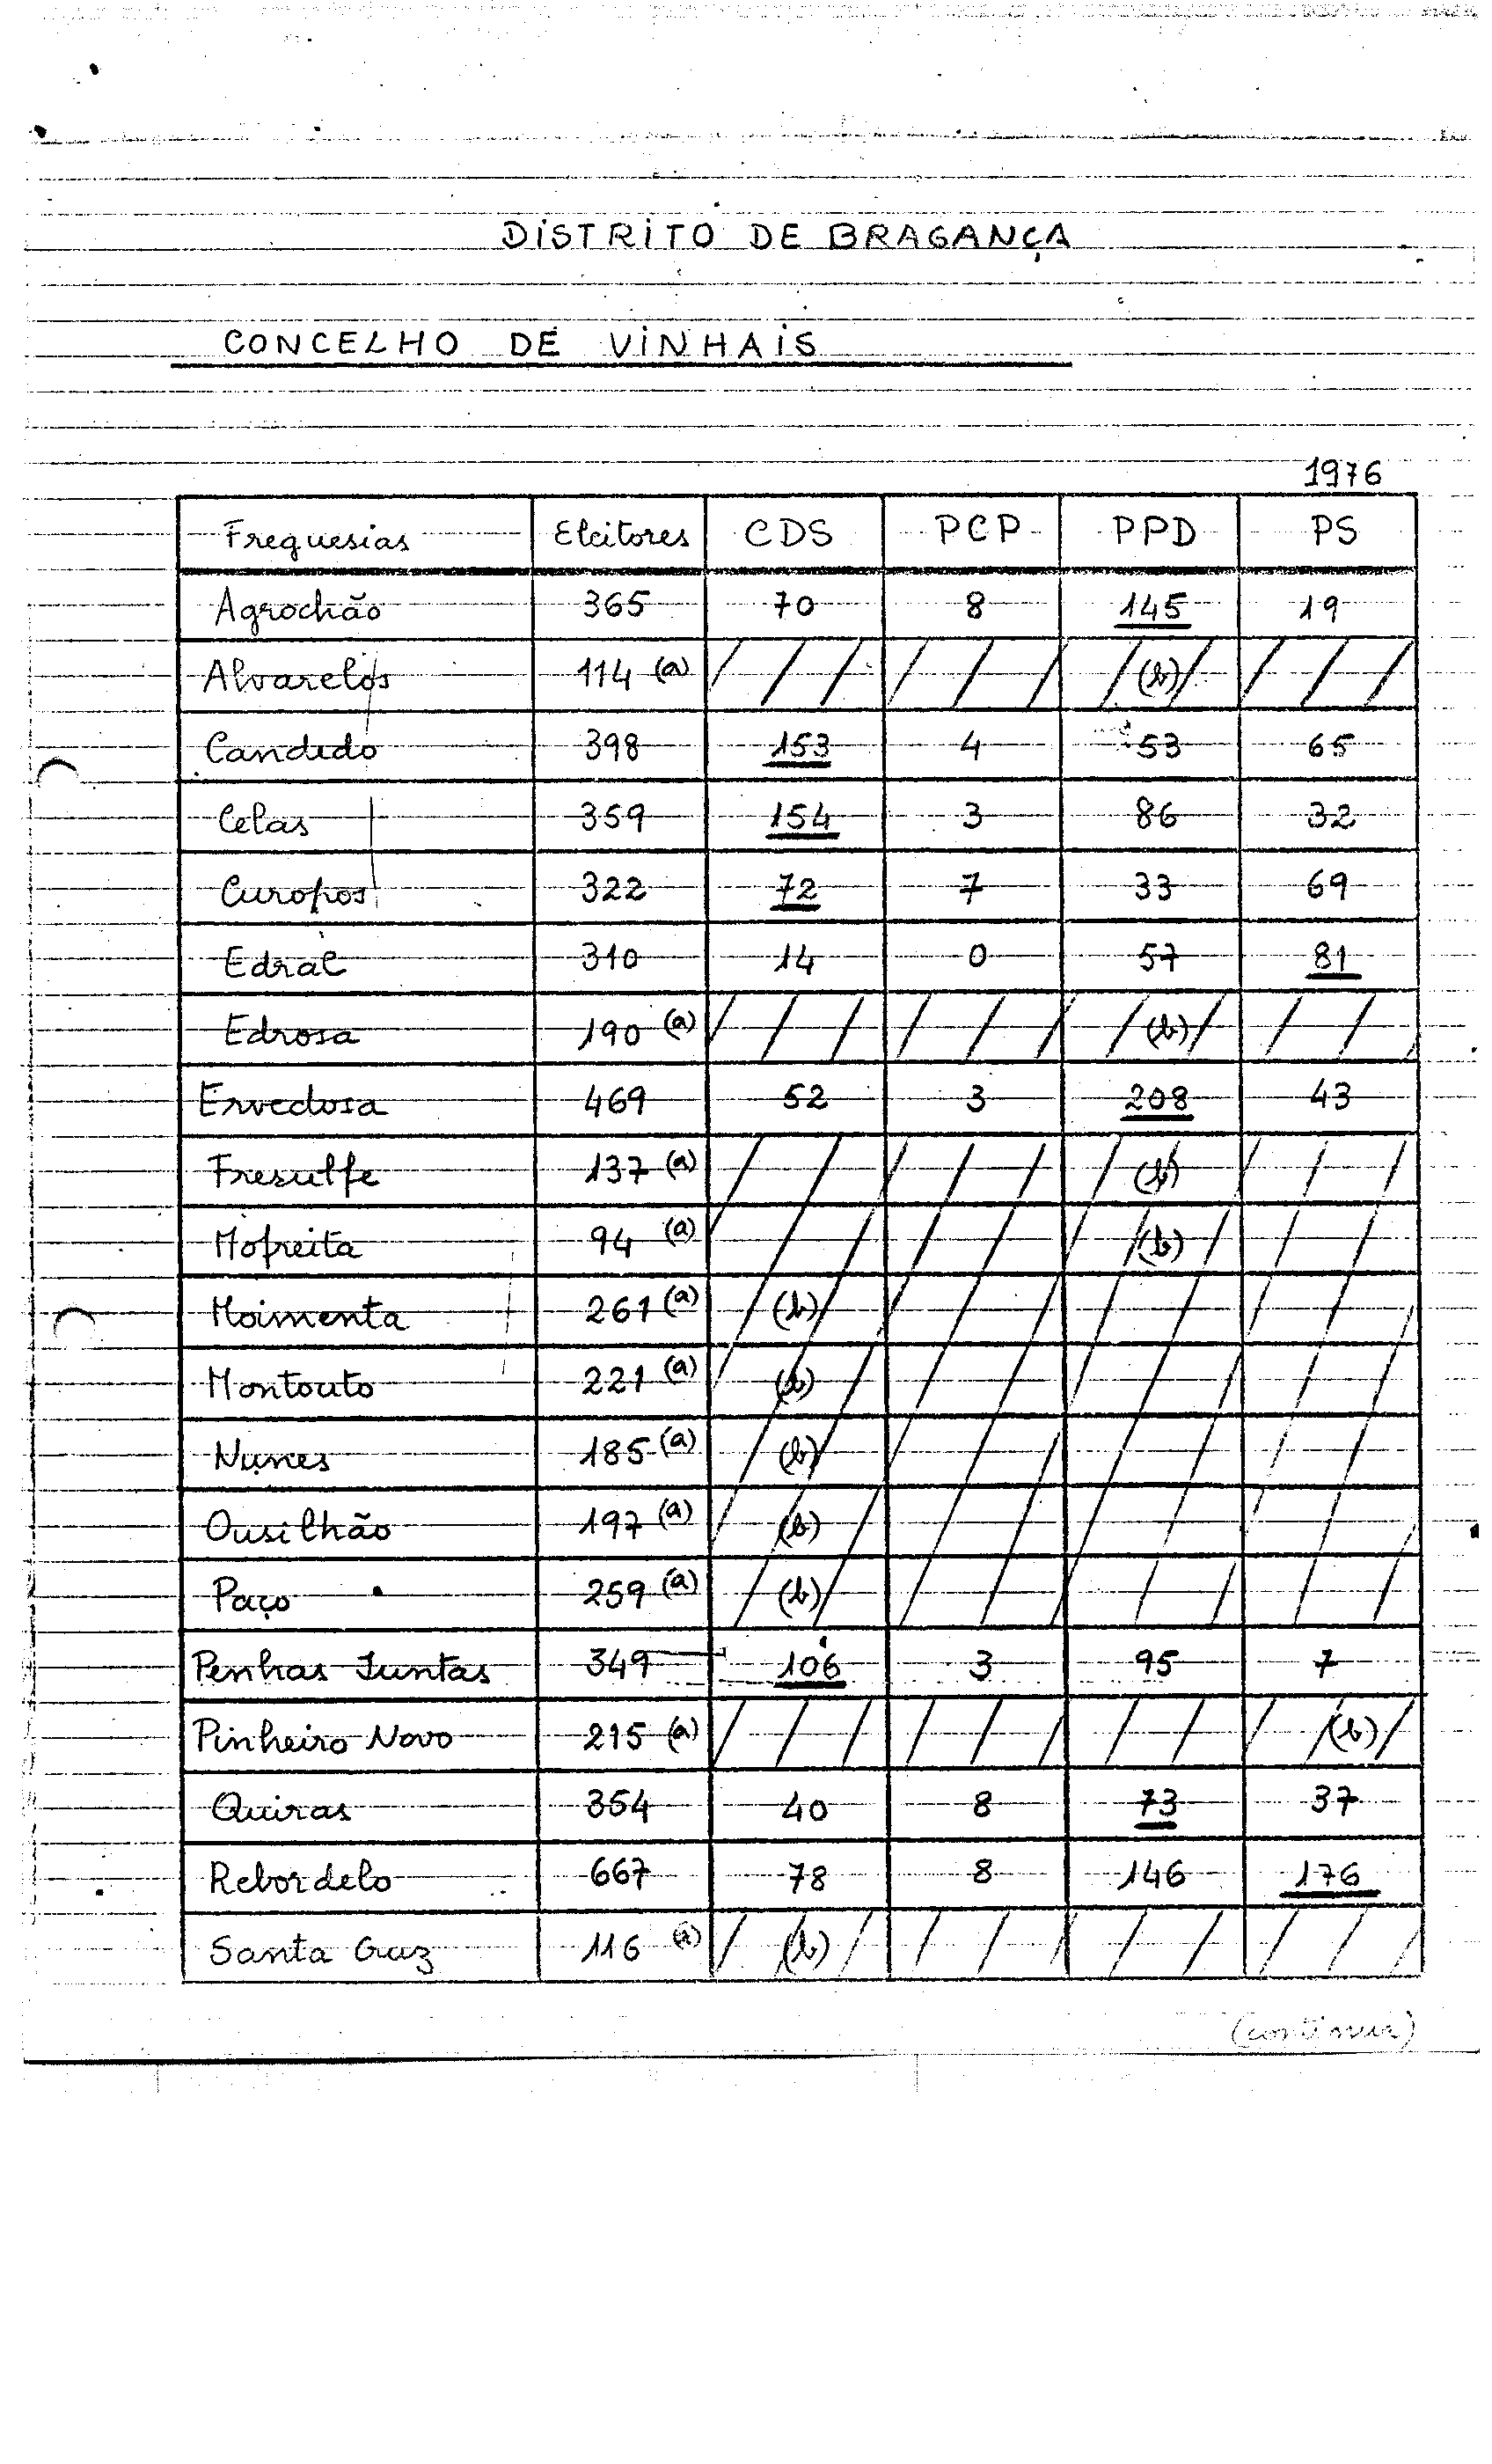 DISTRITO DE BRAGANÇA
CONCELHO DE VINHAIS
1976
Freguesias Eleitores CDS PCP PPD PS
Agrochão 365 70 8 145 19
Alvarelos 114 (a) (b)
Candedo 398 153 4 53 65
Celas 359 154 3 86 32
Curopos 322 72 7 33 69
Edral 310 14 0 57 81
Edrosa 190 (a) (b)
Ervedosa 469 52 3 208 43
Fresulfe 137 (a) (b)
Mofreita 94 (a) (b)
Moimenta 261 (a) (b)
Montouto 221 (a) (b)
Nunes 185 (a) (b)
Ousilhão 197 (a) (b)
Paço 259 (a) (b)
Penhas Juntas 349 106 3 95 7
Pinheiro Novo 215 (a) (b)
Quiras 354 40 8 73 37
Rebordelo 667 78 8 146 176
Santa Cruz 116 (a) (b)
(continua)